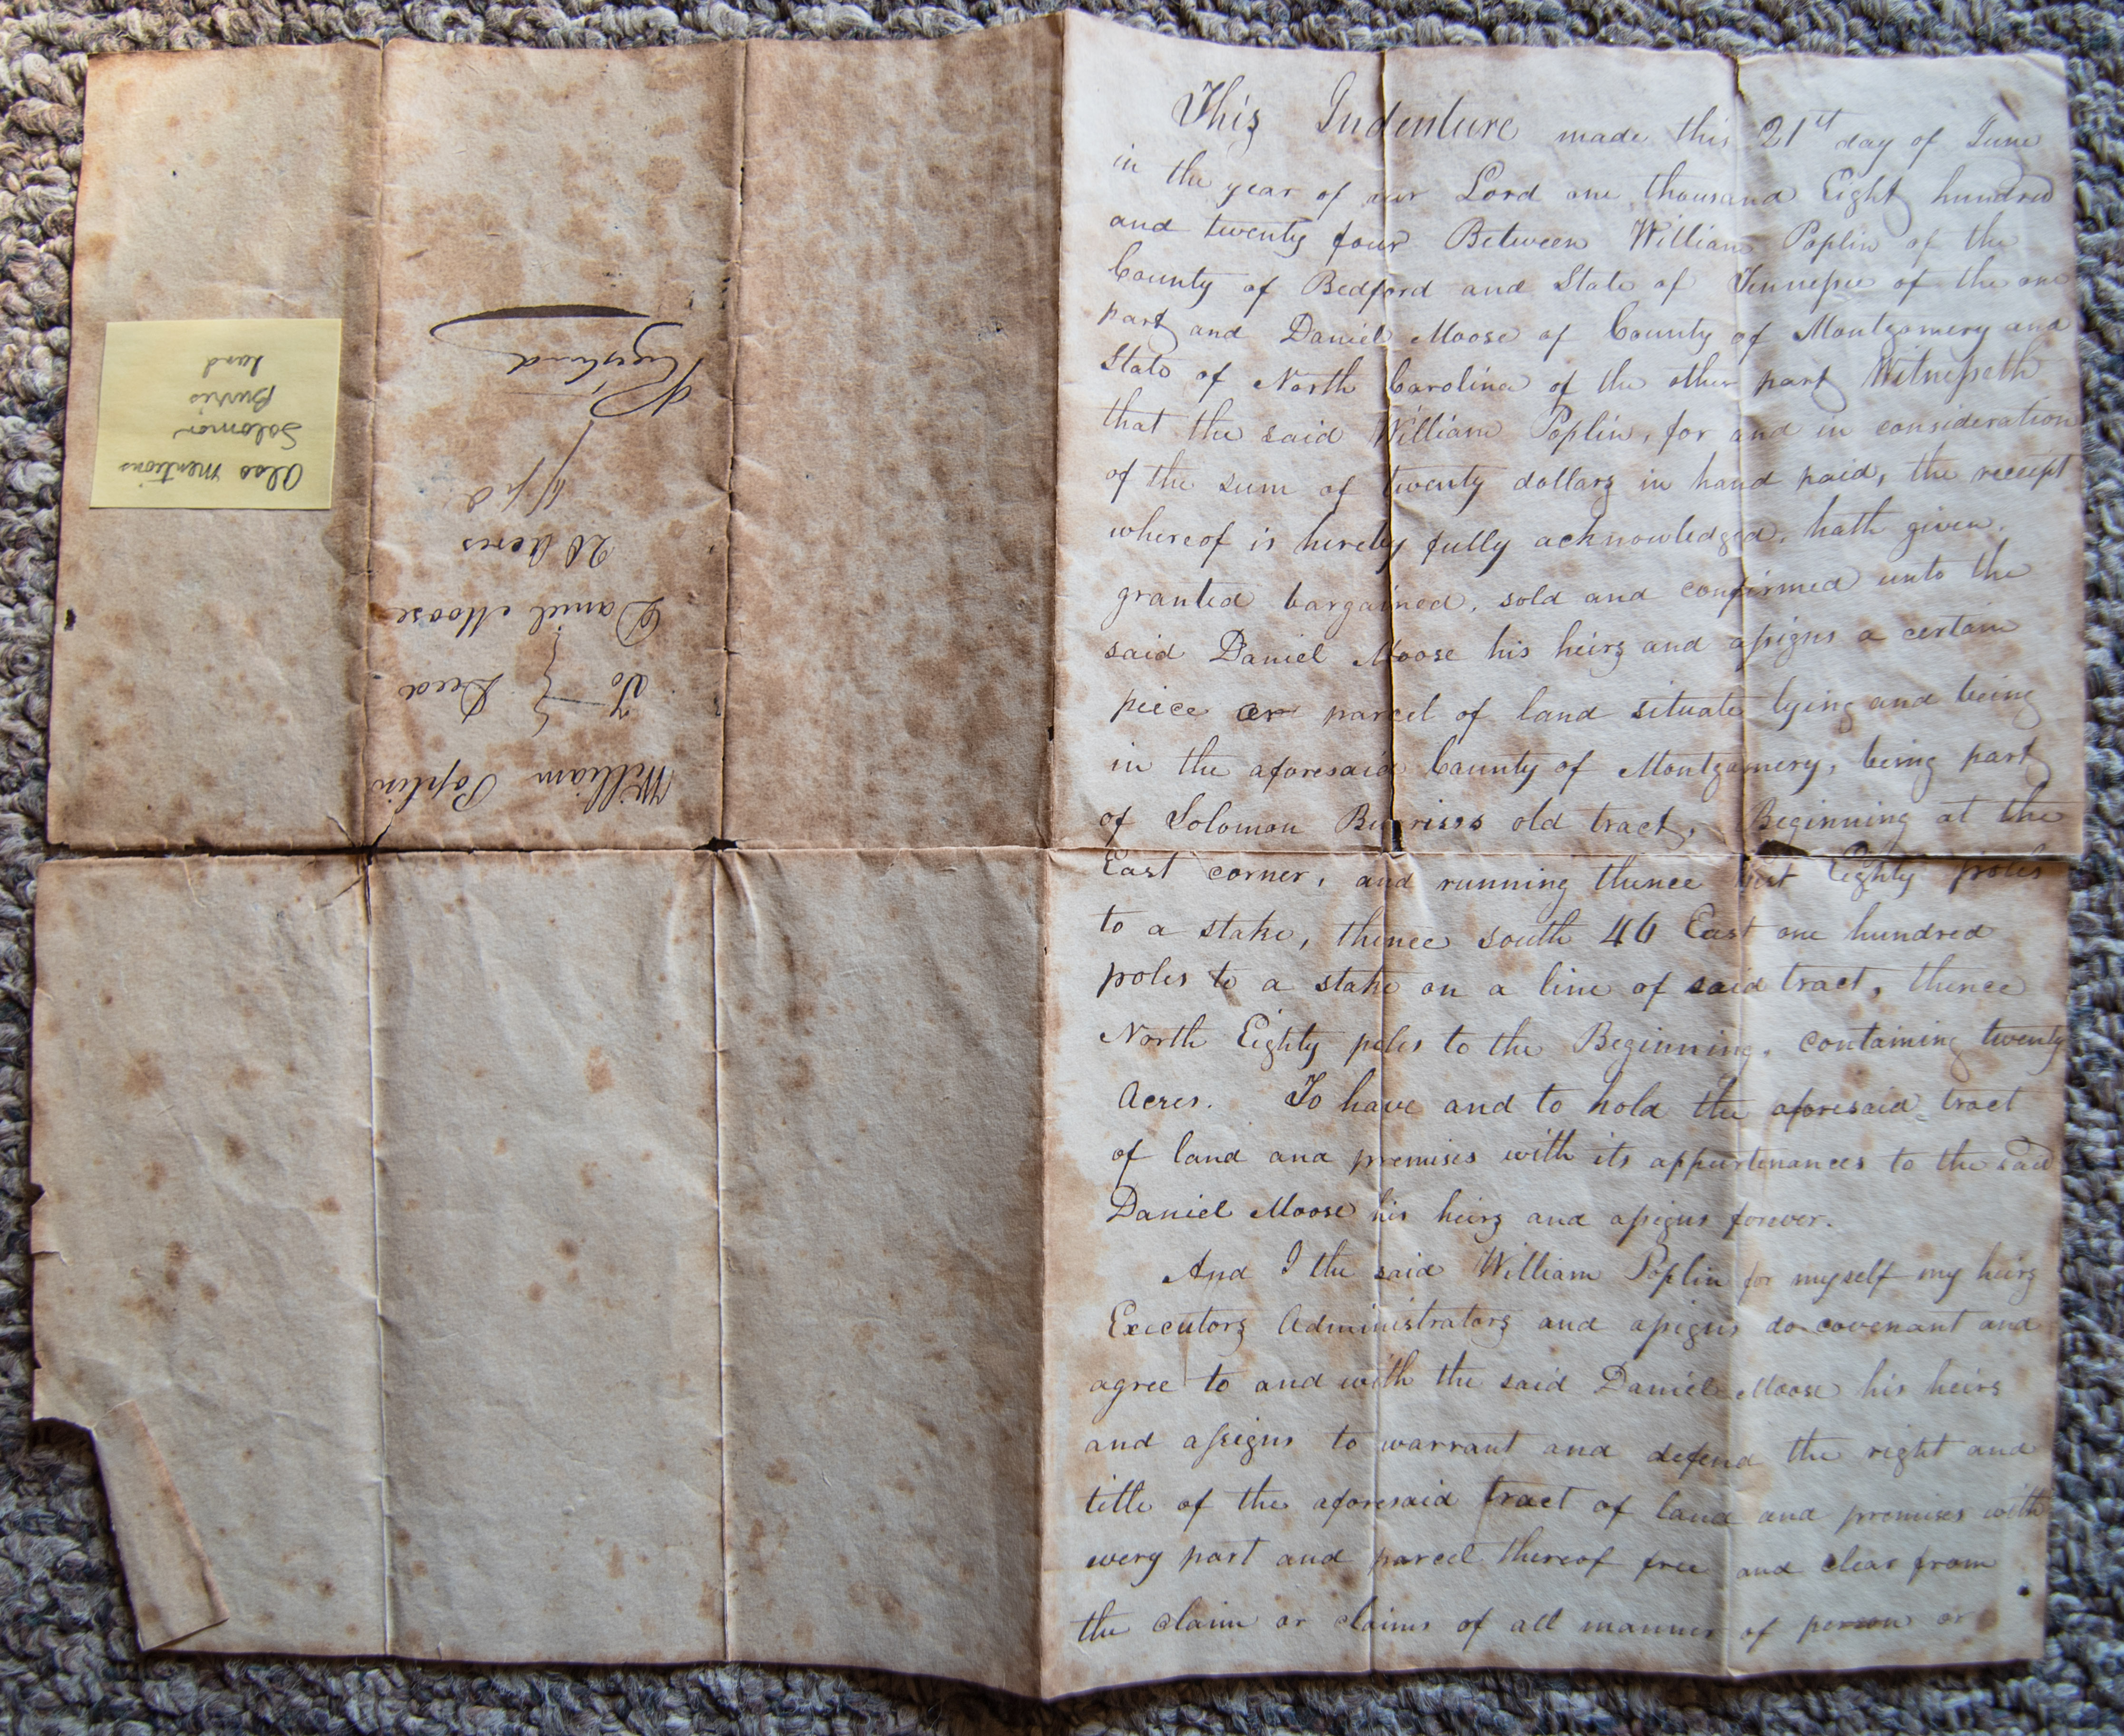 This Indenture made this 21st day of June
in the year of our Lord one thousand Eight hundred
and twenty four Between William Poplin of the
County of Bedford and State of Tennessee of the one
part and Daniel Moose of County of Montgomery and
State of North Carolina of the other part Witnesseth
that the said William Poplin, for and in consideration
of the sum of twenty dollars in hand paid, the receipt
whereof is hereby fully acknowledged, hath given,
granted bargained, sold and confirmed unto the
said Daniel Moose his heirs and assigns a certain
peice or parcel of land situate lying and being
in the aforesaid County of Montgomery, being part
of Solomon Burrises old tract, Beginning at the
East corner, and running thence West Eighty poles
to a stake, thence south 46 East one hundred
poles to a stake on a line of said tract, thence
North Eighty poles to the Beginning, containing twenty
Acres. To have and to hold the aforesaid tract
of land and premises with its appurtenances to the said
Daniel Moose his heirs and assigns forever.
And I the said William Poplin for myself my heirs
Executors Administrators and assigns do covenant and
agree to and with the said Daniel Moose his heirs
and assigns to warrant and defend the right and
title of the aforesaid tract of land and premises with
every part and parcel thereof free and clear from
the claim or claims of all manner of person or
William Poplin
To } Deed
Daniel Moose
20 Acres
Registered
Also mentions
Solomon
Burris
land